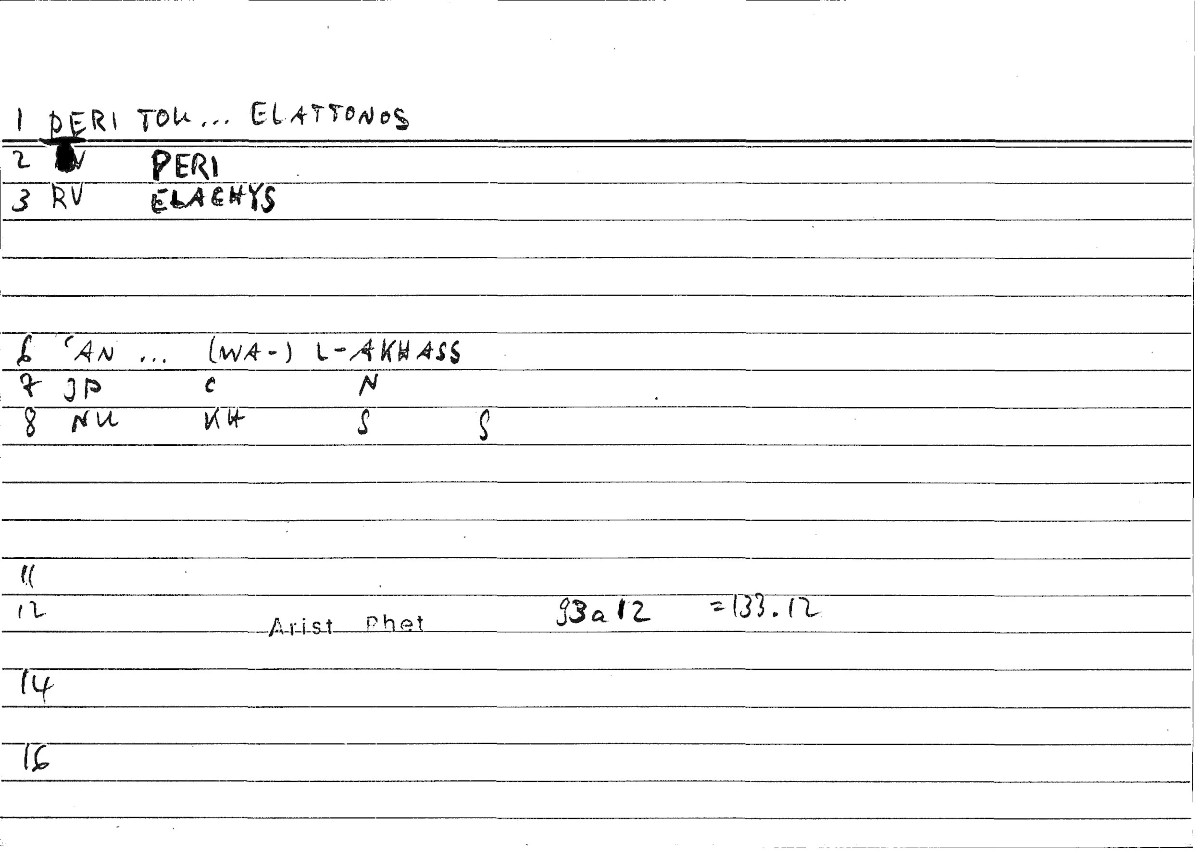 1 PERI TOU... ELATTONOS
2 PERI
3 RV ELACHYS
6 ʿAN ... (WA-) L-AKHASS
7 JP C N
8 NU KH S S
11
12 Arist Rhet 93a12 =133.12
14
16